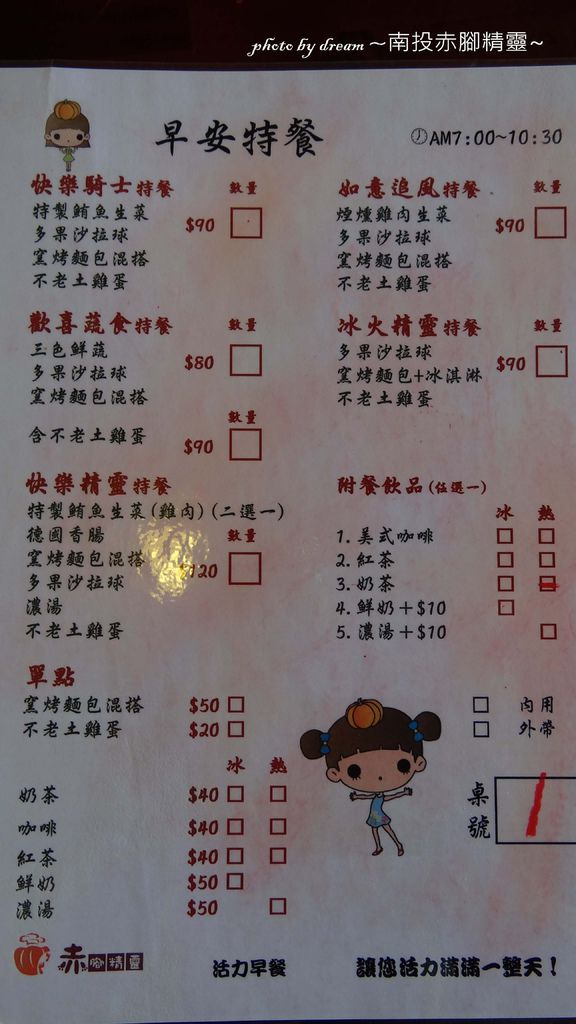 photo by dream ～南投赤腳精靈～
早安特餐
AM7:00~10:30
快樂騎士特餐 數量
特製鮪魚生菜
多果沙拉球
窯烤麵包混搭
不老土雞蛋
$90
如意追風特餐 數量
煙燻雞肉生菜
多果沙拉球
窯烤麵包混搭
不老土雞蛋
$90
歡喜蔬食特餐 數量
三色鮮蔬
多果沙拉球
窯烤麵包混搭
$80
數量
含不老土雞蛋 $90
冰火精靈特餐 數量
多果沙拉球
窯烤麵包+冰淇淋
不老土雞蛋
$90
快樂精靈特餐
特製鮪魚生菜(雞肉)(二選一)
德國香腸 數量
窯烤麵包混搭
多果沙拉球
濃湯
不老土雞蛋
$120
附餐飲品(任選一)
冰 熱
1.美式咖啡
2.紅茶
3.奶茶
4.鮮奶＋$10
5.濃湯＋$10
單點
窯烤麵包混搭 $50
不老土雞蛋 $20
冰 熱
奶茶 $40
咖啡 $40
紅茶 $40
鮮奶 $50
濃湯 $50
內用
外帶
桌號 1
赤腳精靈
活力早餐
讓您活力滿滿一整天！